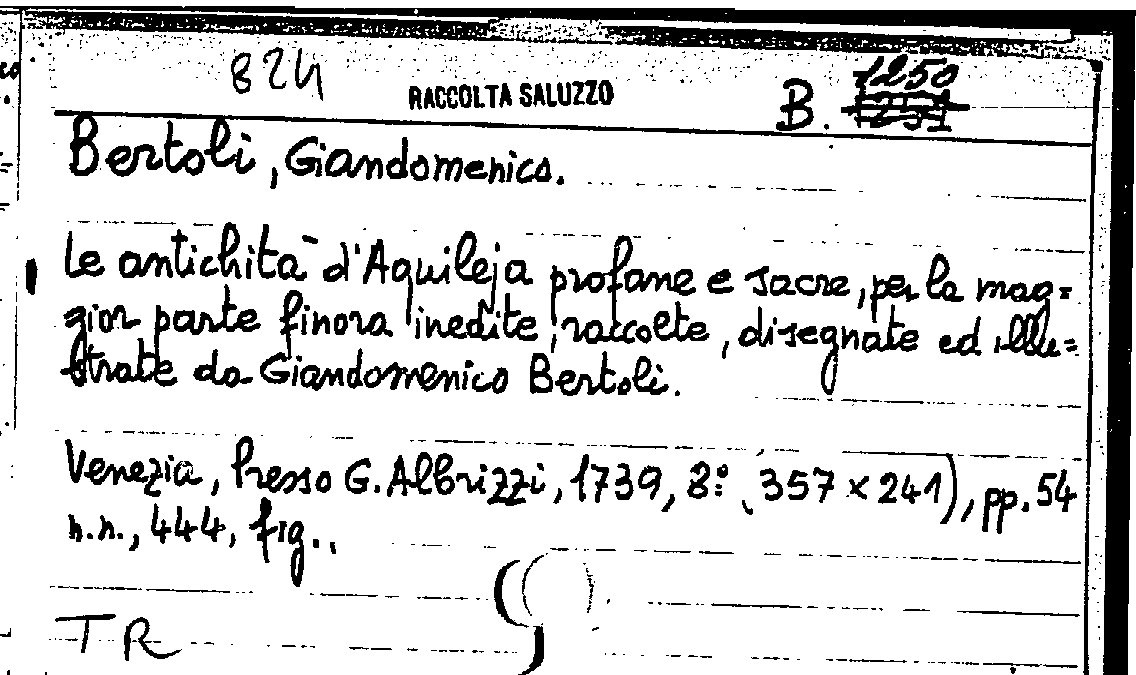 824 RACCOLTA SALUZZO B. 1250
Bertoli, Giandomenico.
Le antichità d'Aquileja profane e sacre, per la mag=
gior parte finora inedite, raccolte, disegnate ed illu=
strate da Giandomenico Bertoli.
Venezia, Presso G. Albrizzi, 1739, 8º (357 x 241), pp. 54
n.n., 444, fig..
TR